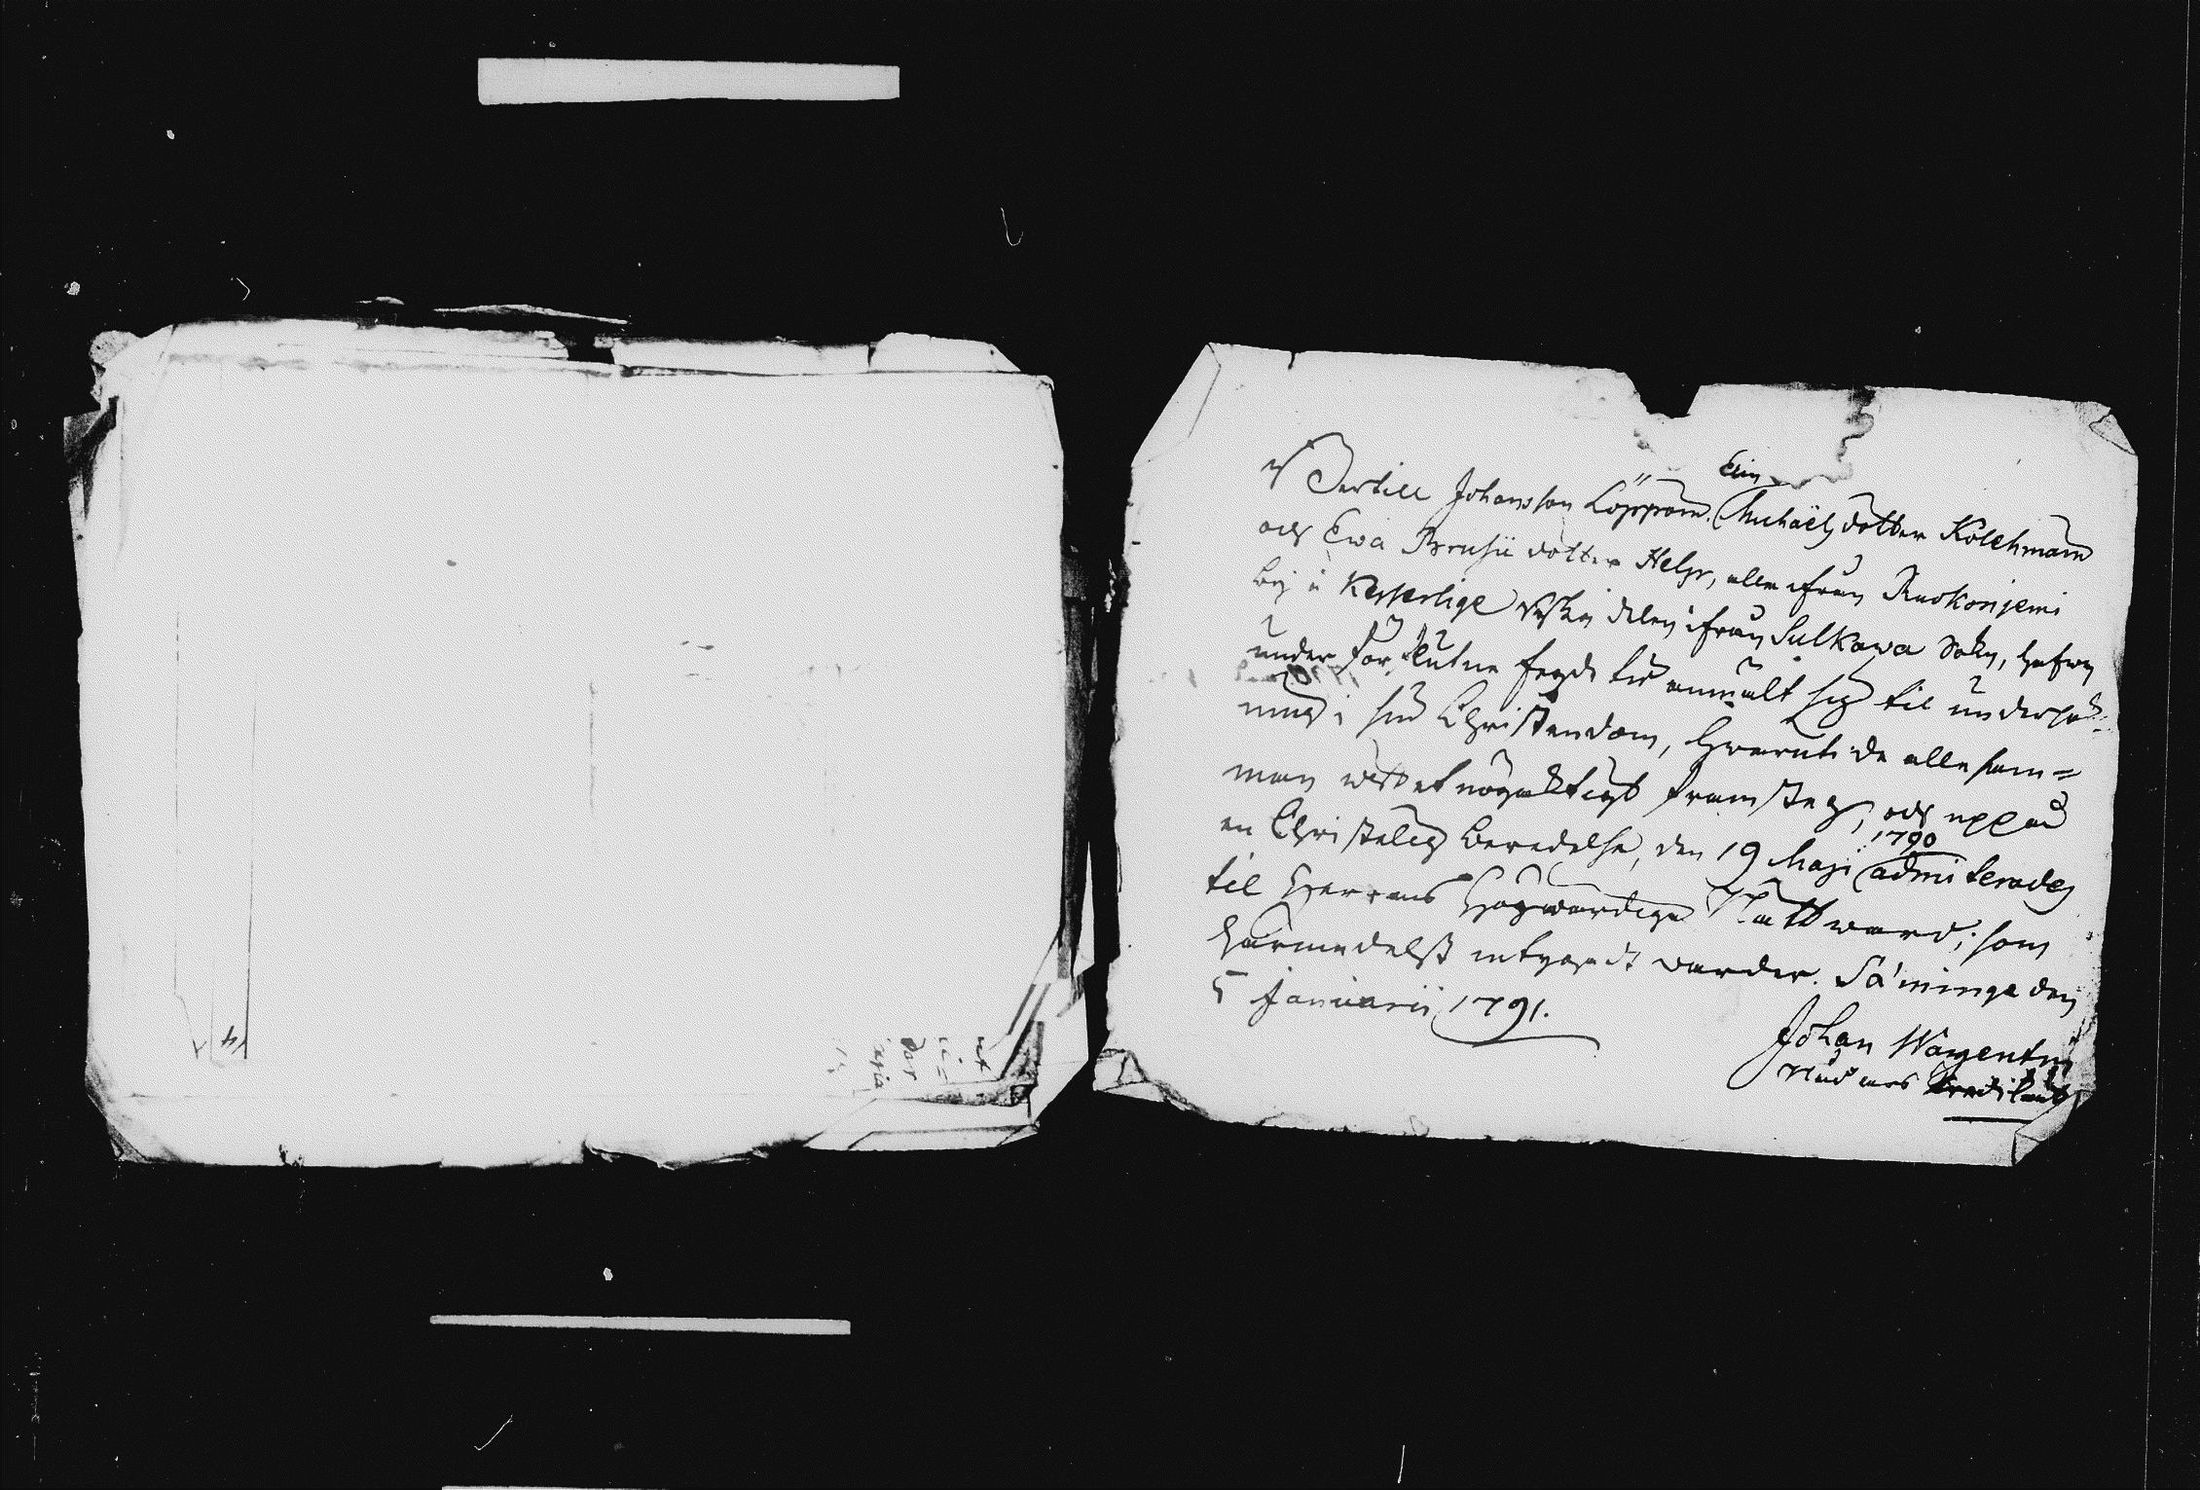 Bertill Johansson Löppön. Elin Michaëls dotter Kolehmain
och Ewa Bruhii dotter Helg, alla ifrån Ruokonjemi
by å Keyserlige delen ifrån Sulkawa Sokn, hafwa
under förflutne tid anmält sig til undersök-
ning i sin Christendom, hwaruti de allesam=
man wist et nögaktigt framsteg, och uppå
en Christelig beredelse, den 19 Maji 1790 admitterades
til Herrans Högwördiga Nattward; som
härmedelst intygadt warder. Sa'minge den
5 Januarii 1791.
Johan Wargentin